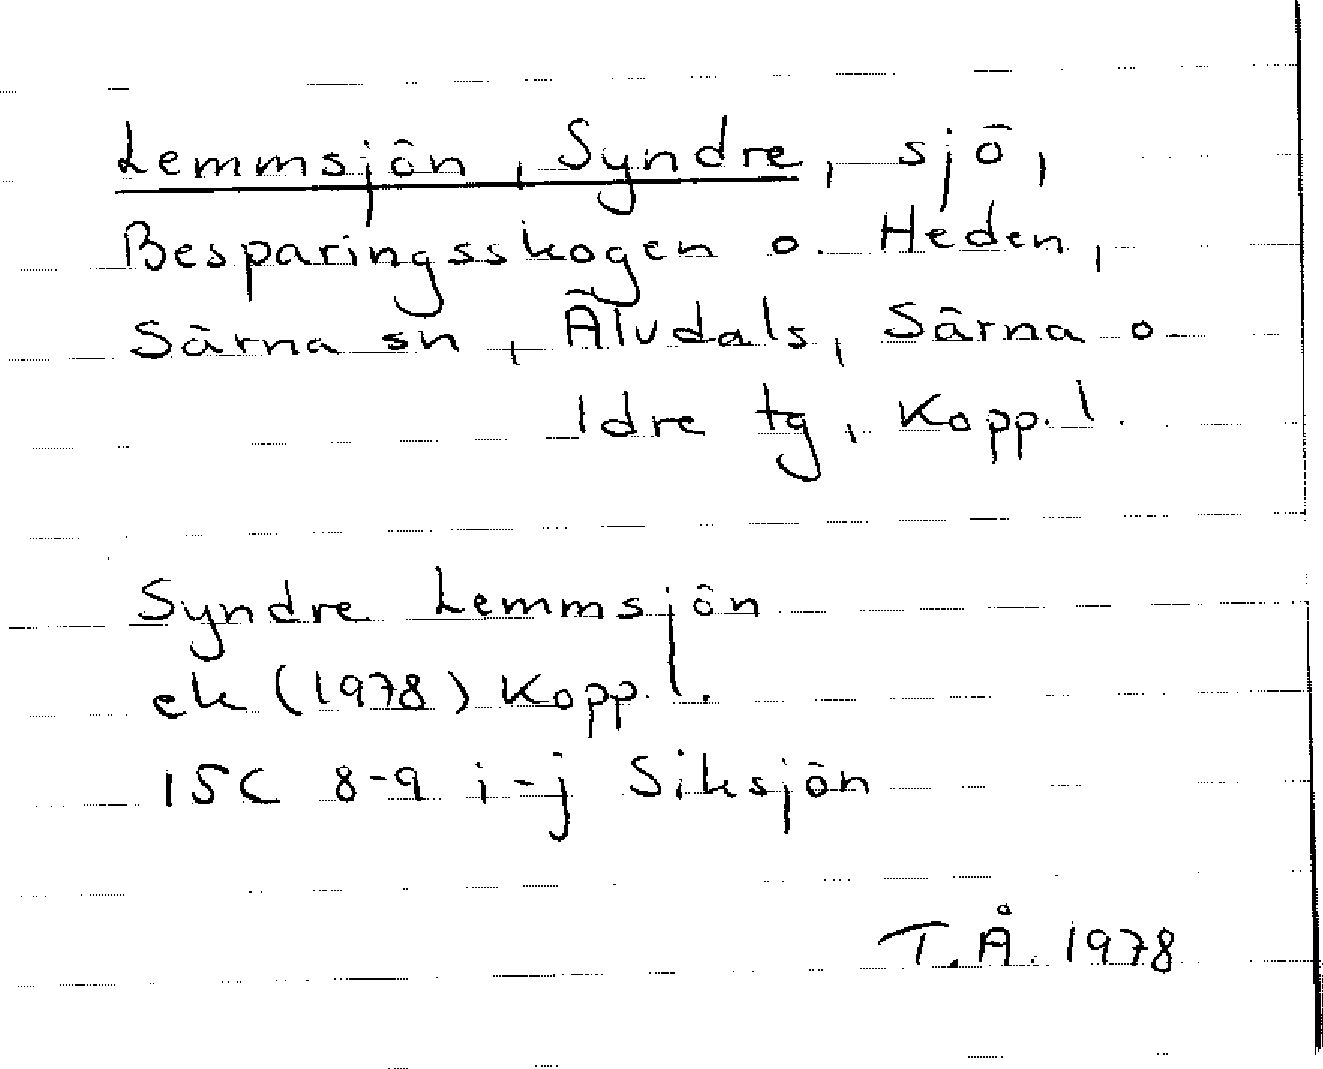 Lemmsjön, Syndre, sjö,
Besparingsskogen o. Heden,
Särna sn, Älvdals, Särna o
Idre tg, Kopp. l.
Syndre Lemmsjön
ek (1978) Kopp. l.
15C 8-9 i-j Siksjön
T.Å. 1978